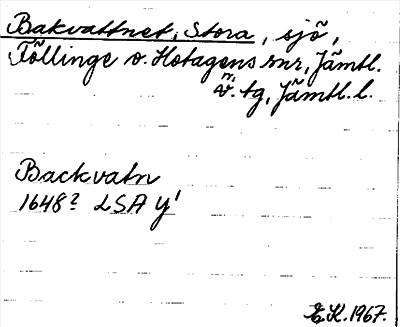 Bakvattnet, Stora, sjö,
Föllinge o. Hotagens snr, Jämtl.
n. v. tg, Jämtl. l.
Backvatn
1648? LSA Y¹
E.K. 1967.